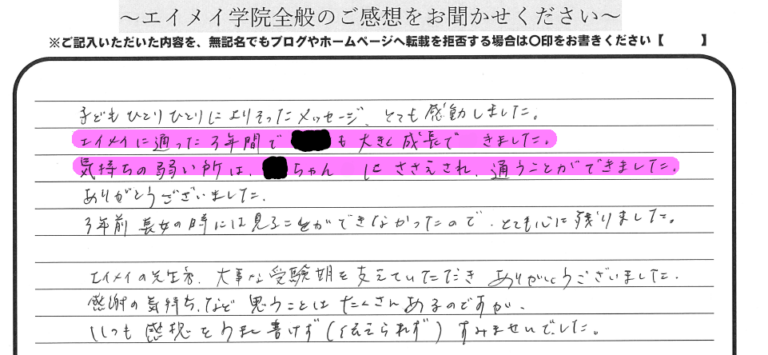 ～エイメイ学院全般のご感想をお聞かせください～
※ご記入いただいた内容を、無記名でもブログやホームページへ転載を拒否する場合は〇印をお書きください【　　　】
子どもひとりひとりによりそったメッセージ、とても感動しました。
エイメイに通った3年間で も大きく成長で きました。
気持ちの弱い所は、 ちゃん にささえされ、通うことができました。
ありがとうございました。
3年前 長女の時には見ることができなかったので、とても心に残りました。
エイメイの先生方、大事な受験期を支えていただき ありがとうございました。
感謝の気持ち、など 思うことは たくさんあるのですが、
いつも 感想をうまく書けず(伝えられず) すみませんでした。